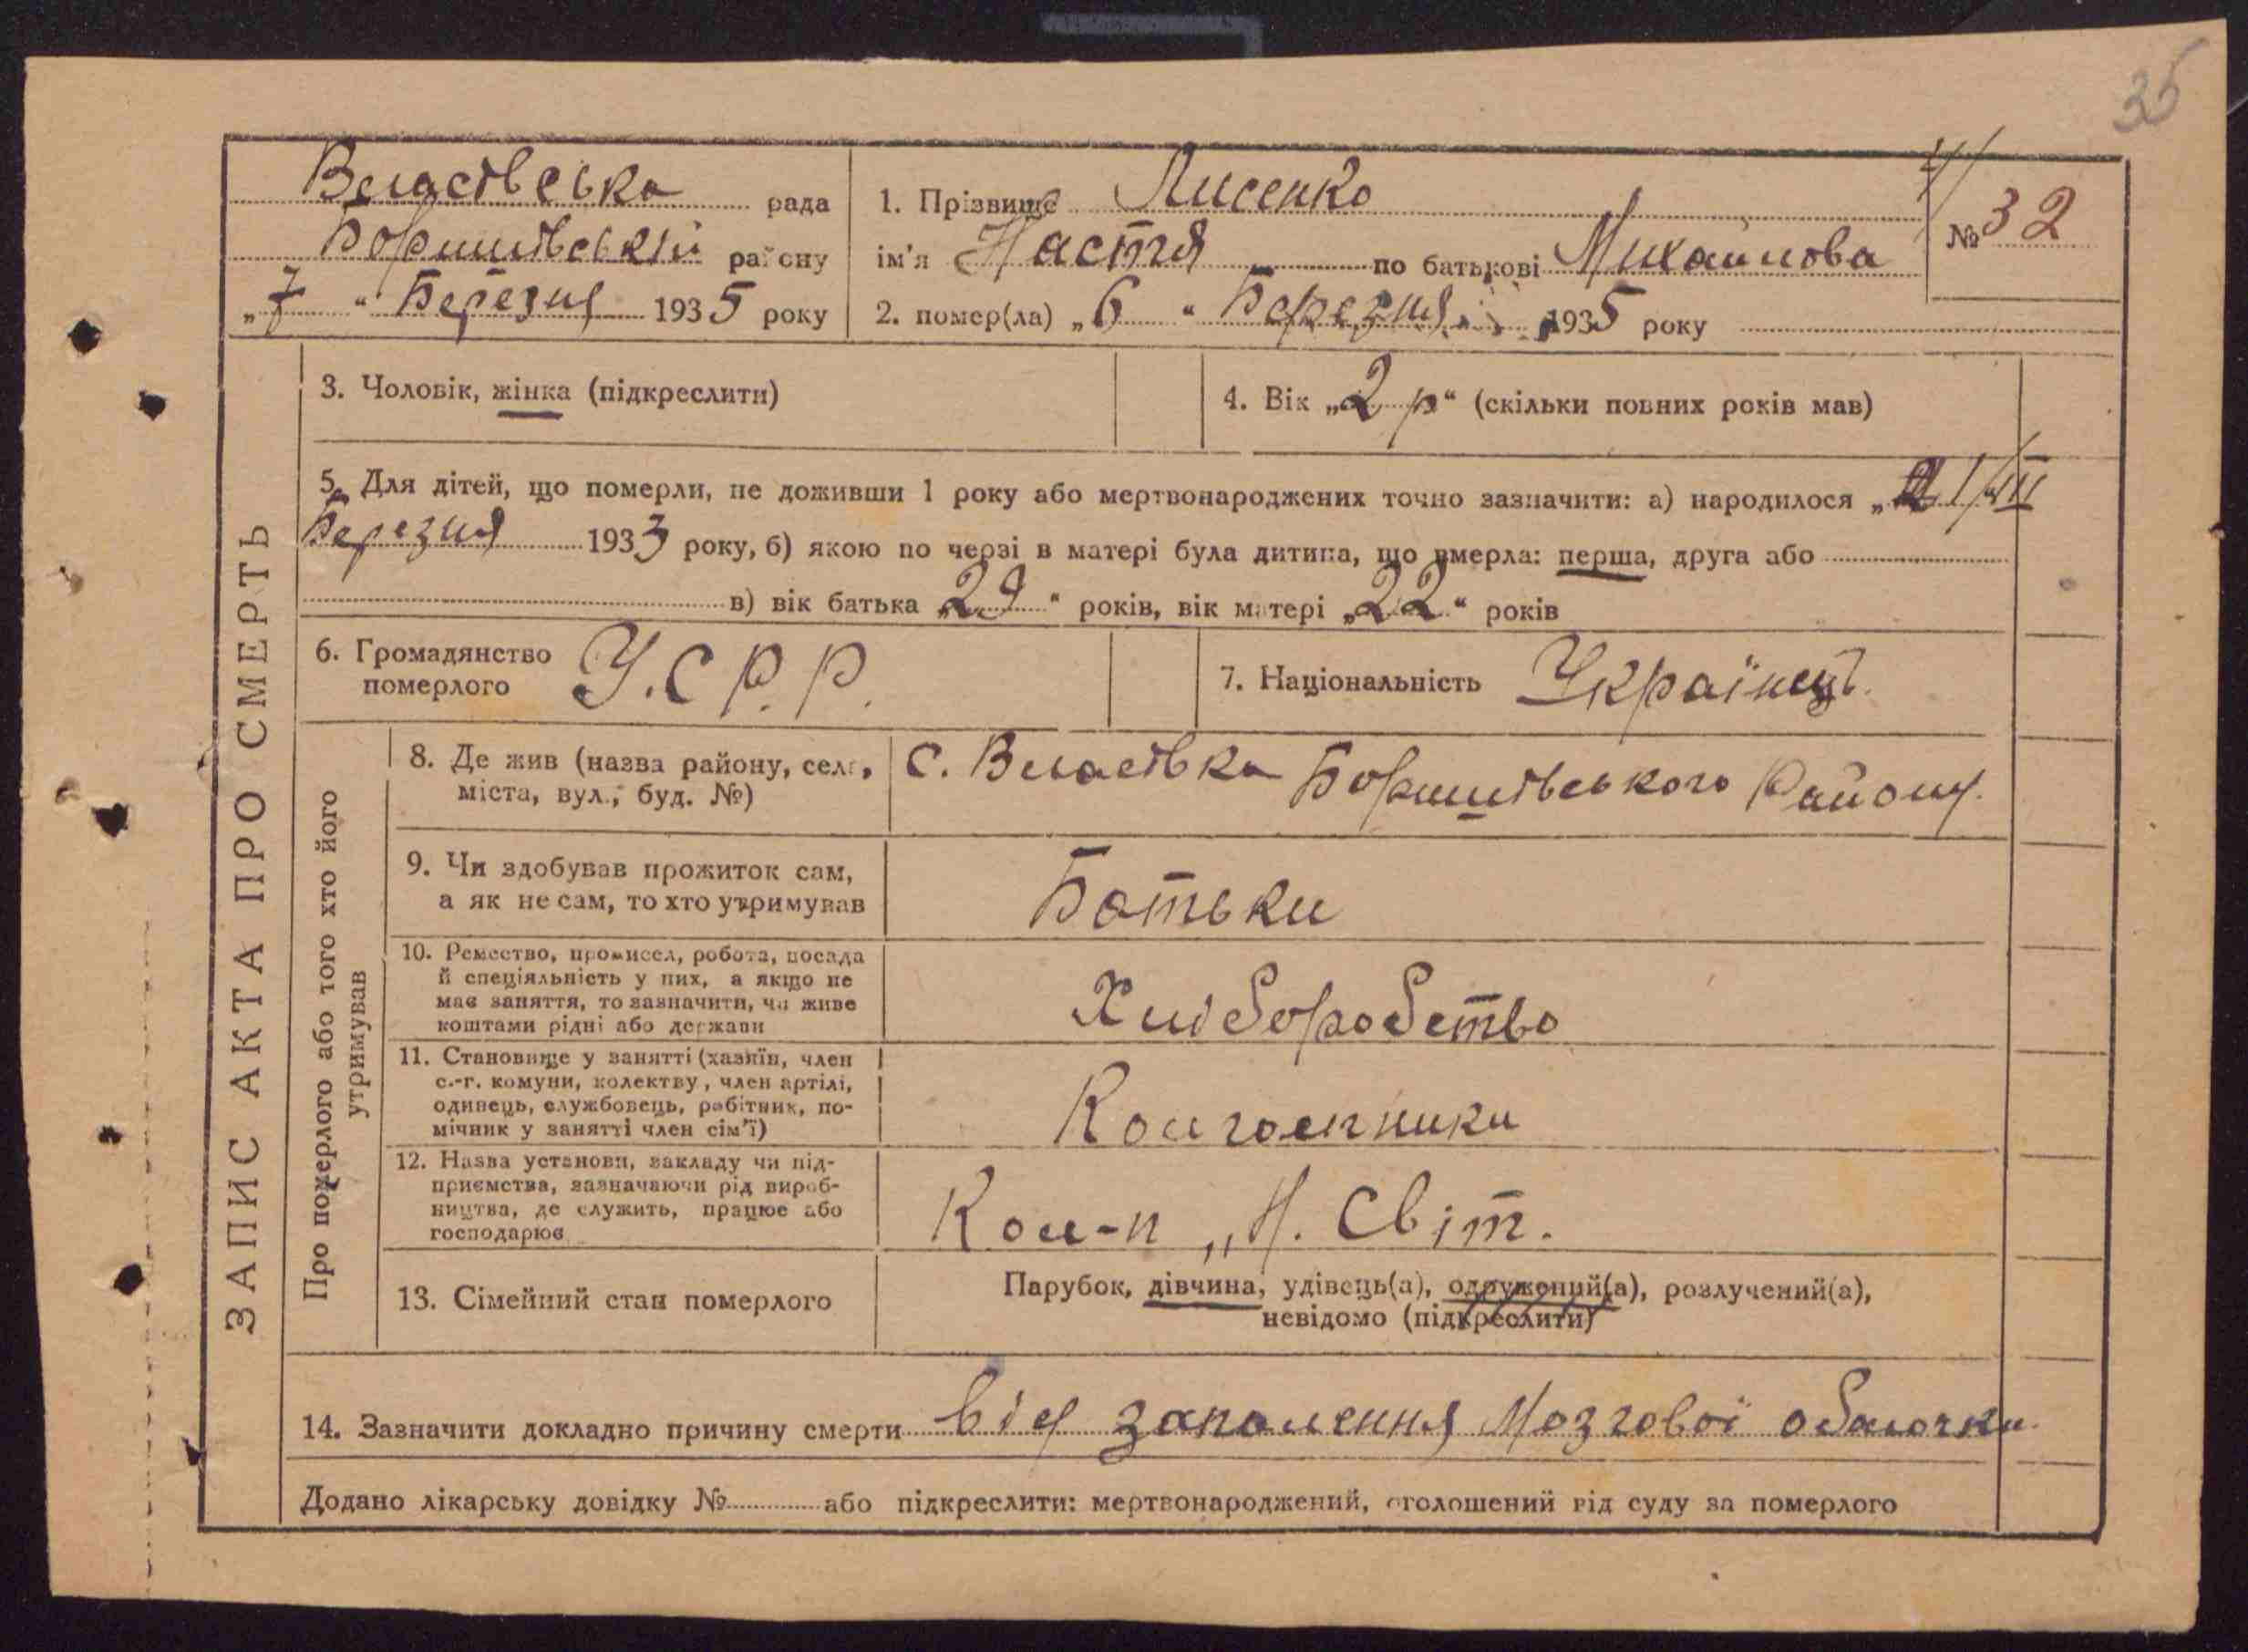 35
Власівська рада
Боришівський району
„7“ Березня 1935 року
1. Прізвище Лисенко
ім'я Настя по батькові Михайлова
№ 32
2. помер(ла) „6“ Березня 1935 року
ЗАПИС АКТА ПРО СМЕРТЬ
3. Чоловік, жінка (підкреслити)
4. Вік „2 р“ (скільки повних років мав)
5. Для дітей, що померли, не доживши 1 року або мертвонароджених точно зазначити: а) народилося „21/III
Березня 1933 року, б) якою по черзі в матері була дитина, що вмерла: перша, друга або
в) вік батька „29“ років, вік матері „22“ років
6. Громадянство
померлого
У.С.Р.Р.
7. Національність Українець.
Про померлого або того хто його
утримував
8. Де жив (назва району, села,
міста, вул., буд. №)
с. Власівка Боришівського Району.
9. Чи здобував прожиток сам,
а як не сам, то хто утримував
Батьки
10. Ремество, промисел, робота, посада
й спеціяльність у них, а якщо не
має заняття, то зазначити, чи живе
коштами рідні або держави
Хліборобство
11. Становище у занятті (хазяїн, член
с.-г. комуни, колективу, член артілі,
одинець, службовець, робітник, по-
мічник у занятті член сім'ї)
Колгоспники
12. Назва установи, закладу чи під-
приємства, зазначаючи рід вироб-
ництва, де служить, працює або
господарює
Кол-п „Н. Світ.
13. Сімейний стан померлого
Парубок, дівчина, удівець(а), одружений(а), розлучений(а),
невідомо (підкреслити)
14. Зазначити докладно причину смерти від запалення Мозгової оболочки.
Додано лікарську довідку № або підкреслити: мертвонароджений, оголошений від суду за померлого